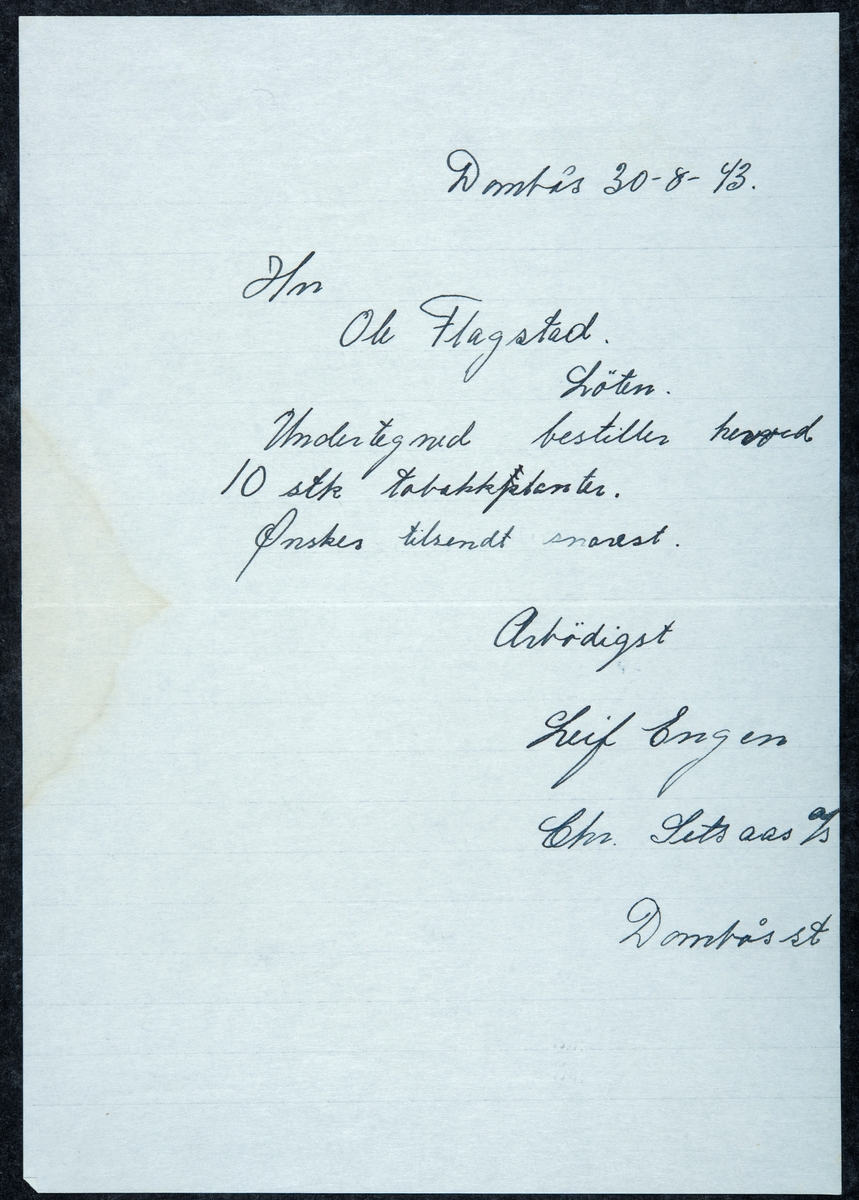 Dombås 30-8-43.
Hr
Ole Flagstad.
Löten.
Undertegned bestiller herved
10 stk tobakkplanter.
Ønskes tilsendt snarest.
Arbödigst
Leif Engen
Chr. Setsaas a/s
Dombås st